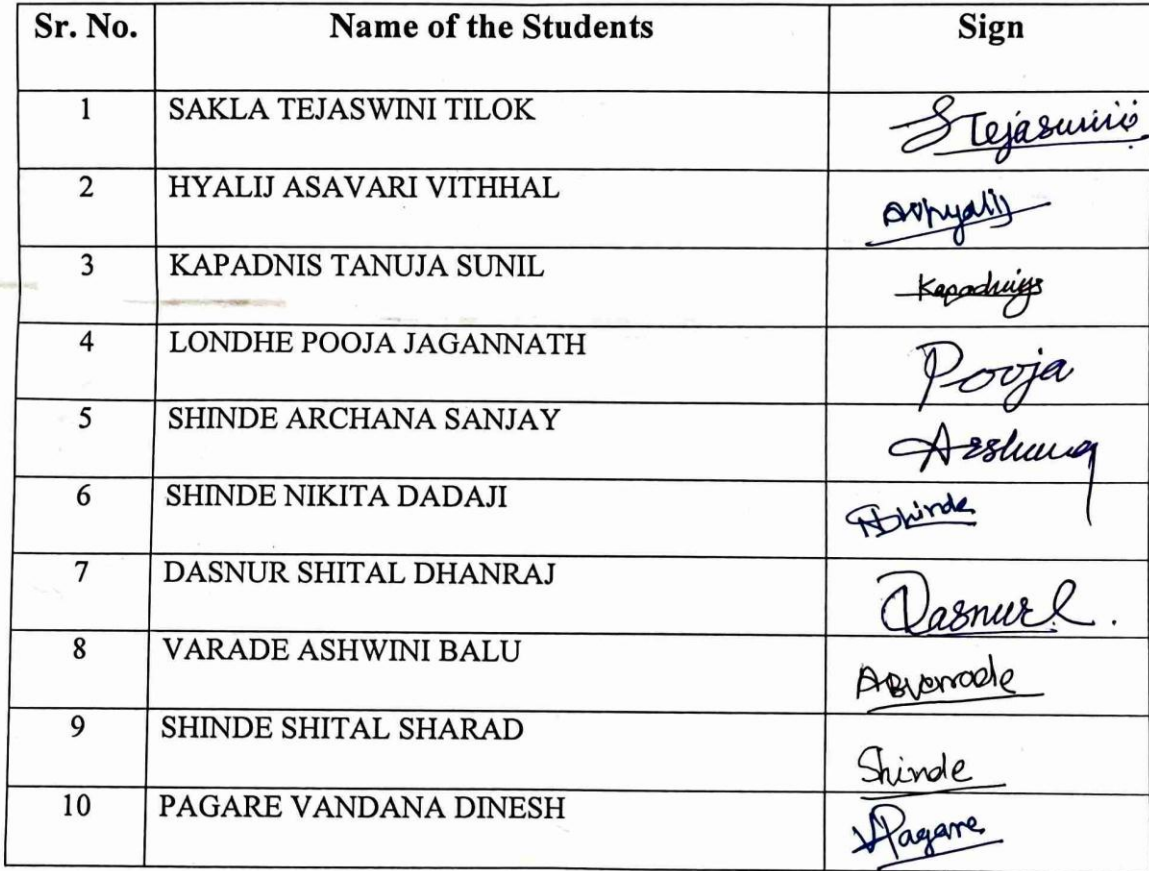 Sr. No. Name of the Students Sign
1 SAKLA TEJASWINI TILOK STejaswini
2 HYALIJ ASAVARI VITHHAL AVHyalij
3 KAPADNIS TANUJA SUNIL Kapadnis
4 LONDHE POOJA JAGANNATH Pooja
5 SHINDE ARCHANA SANJAY
6 SHINDE NIKITA DADAJI NDhinde
7 DASNUR SHITAL DHANRAJ Dasnur
8 VARADE ASHWINI BALU ABVarade
9 SHINDE SHITAL SHARAD Shinde
10 PAGARE VANDANA DINESH VPagare